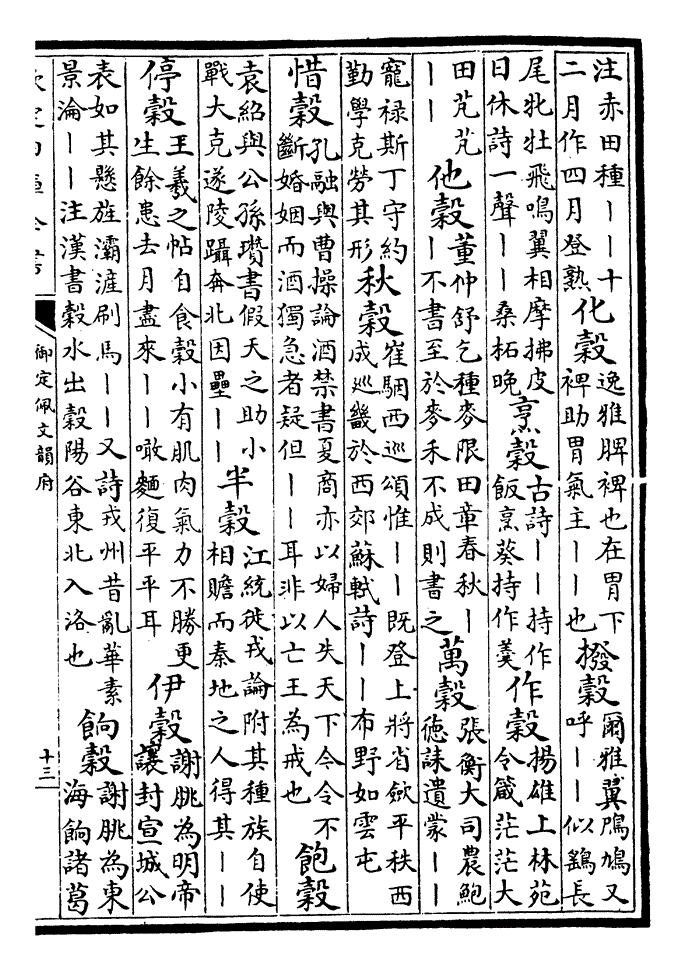 注赤田種〡〡十
二月作四月登熟
化穀
逸雅脾裨也在胃下
裨助胃氣主〡〡也
撥穀
爾雅翼鳲鳩又
呼〡〡似鷂長
尾牝牡飛鳴翼相摩拂皮
日休詩一聲〡〡桑柘晚
烹穀
古詩〡〡持作
飯烹葵持作羮
作穀
揚雄上林苑
令箴茫茫大
田芃芃
〡〡
他穀
董仲舒乞種麥限田章春秋〡
〡不書至於麥禾不成則書之
萬穀
張衡大司農鮑
徳誄遺蒙〡〡
寵禄斯丁守約
勤學克勞其形
秋穀
崔駰西巡頌惟〡〡既登上將省斂平秩西
成巡畿於西郊蘇軾詩〡〡布野如雲屯
惜穀
孔融與曹操論酒禁書夏商亦以婦人失天下今令不
斷婚姻而酒獨急者疑但〡〡耳非以亡王為戒也
飽穀
袁紹與公孫瓚書假天之助小
戰大克遂陵躡奔北因壘〡〡
半穀
江統徙戎論附其種族自使
相贍而秦地之人得其〡〡
停穀
王羲之帖自食穀小有肌肉氣力不勝更
生餘患去月盡來〡〡噉麵復平平耳
伊穀
謝朓為明帝
讓封宣城公
表如其懸旌灞涯刷馬〡〡又詩戎州昔亂華素
景淪〡〡注漢書穀水出穀陽谷東北入洛也
餉穀
謝朓為東
海餉諸葛
御定佩文韻府
十三